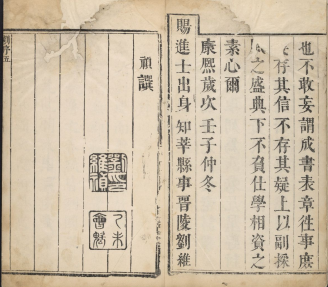 也不敢妄謂成書表章往事庶
存其信不存其疑上以副採
之盛典下不負仕學相資之
素心爾
康熙歲次壬子仲冬
賜進士出身知莘縣事晉陵劉維
禎譔